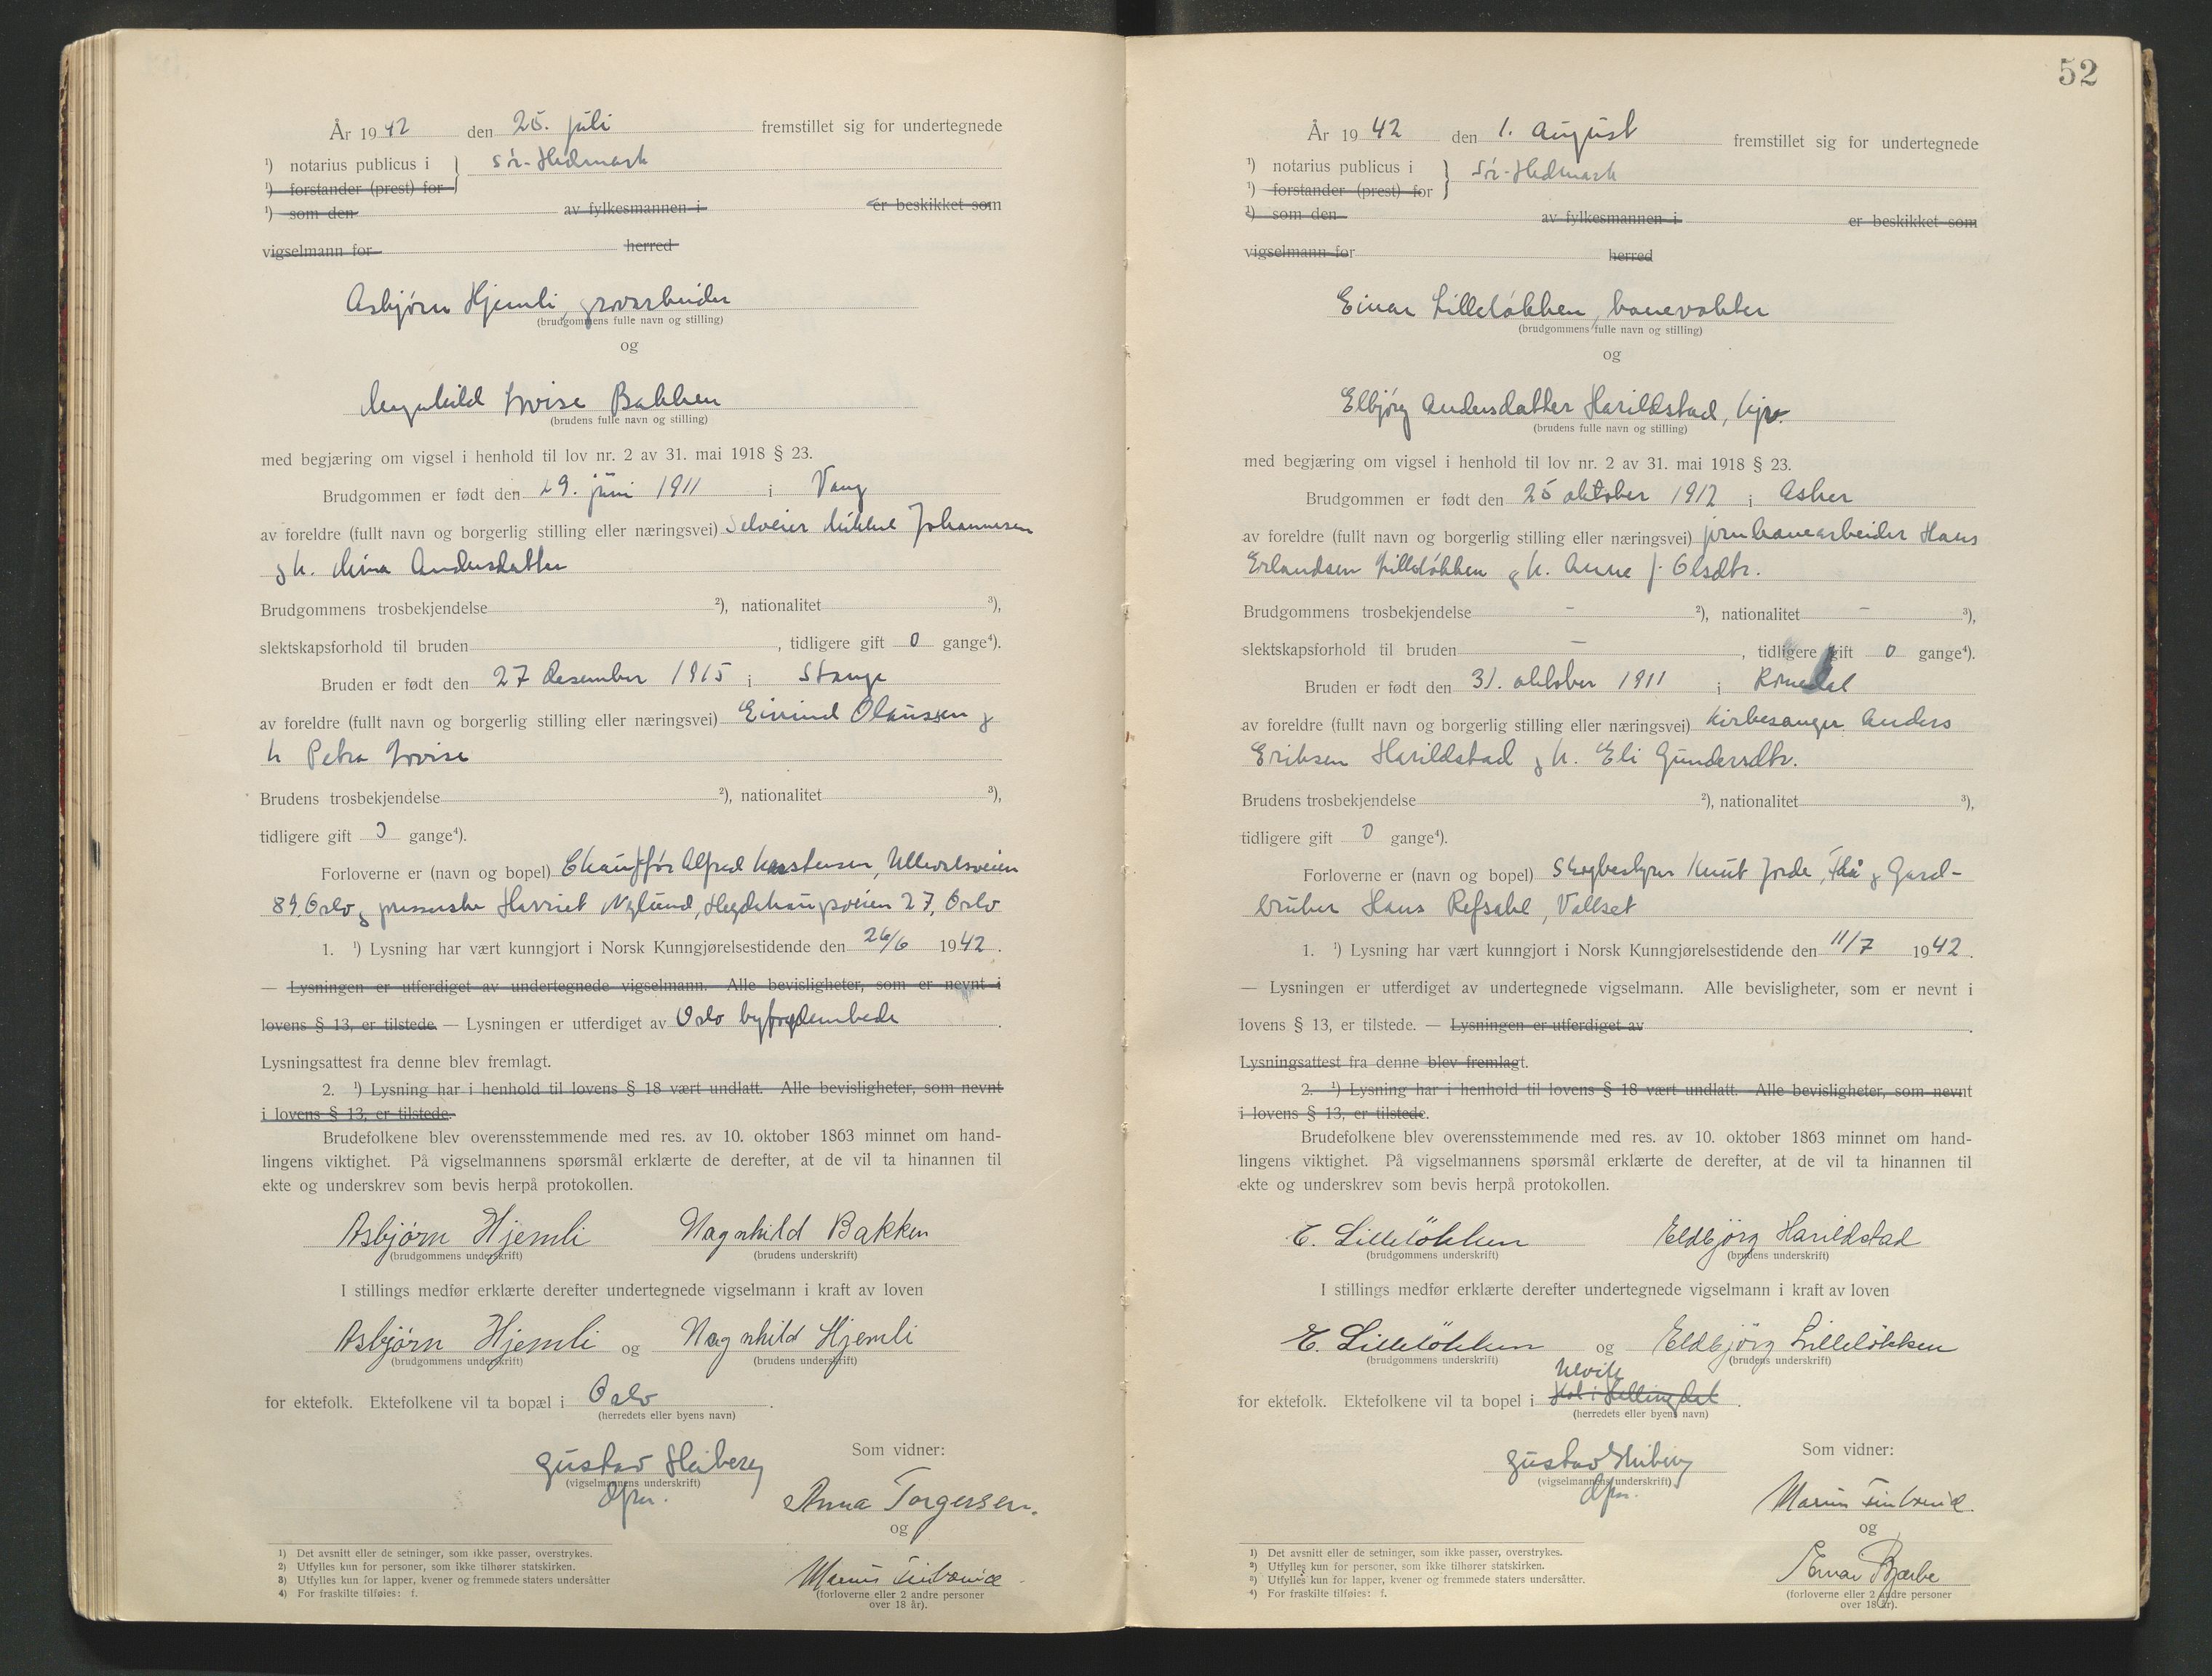 År 1942 den 25. juli fremstillet sig for undertegnede
¹) notarius publicus i } Sør-Hedmark
¹) forstander (prest) for
¹) som den av fylkesmannen i er beskikket som
vigselmann for herred
Asbjørn Hjemli, grovarbeider
(brudgommens fulle navn og stilling)
og
Magnhild Lovise Bakken
(brudens fulle navn og stilling)
med begjæring om vigsel i henhold til lov nr. 2 av 31. mai 1918 § 23.
Brudgommen er født den 29. juni 1911 i Vang
av foreldre (fullt navn og borgerlig stilling eller næringsvei) Selveier Mikkel Johannesen
og h. Mina Andersdatter
Brudgommens trosbekjendelse ²), nationalitet ³),
slektskapsforhold til bruden , tidligere gift 0 gange⁴).
Bruden er født den 27 desember 1915 i Stange
av foreldre (fullt navn og borgerlig stilling eller næringsvei) Eivind Olaussen og
h Petra Lovise
Brudens trosbekjendelse ²), nationalitet ³),
tidligere gift 0 gange⁴).
Forloverne er (navn og bopel) Chauffør Alfred Karstensen, Ullevolsveien
89 Oslo og presserske Harriet Nylund, Hegdehaugsveien 27, Oslo
1. ¹) Lysning har vært kunngjort i Norsk Kunngjørelsestidende den 26/6 1942.
— Lysningen er utferdiget av undertegnede vigselmann. Alle bevisligheter, som er nevnt i
lovens § 13, er tilstede. — Lysningen er utferdiget av Oslo byfogdembede .
Lysningsattest fra denne blev fremlagt.
2. ¹) Lysning har i henhold til lovens § 18 vært undlatt. Alle bevisligheter, som nevnt
i lovens § 13, er tilstede.
Brudefolkene blev overensstemmende med res. av 10. oktober 1863 minnet om hand-
lingens viktighet. På vigselmannens spørsmål erklærte de derefter, at de vil ta hinannen til
ekte og underskrev som bevis herpå protokollen.
Asbjørn Hjemli Magnhild Bakken
(brudgommens underskrift) (brudens underskrift)
I stillings medfør erklærte derefter undertegnede vigselmann i kraft av loven
Asbjørn Hjemli og Magnhild Hjemli
(brudgommens underskrift) (brudens underskrift)
for ektefolk. Ektefolkene vil ta bopæl i Oslo .
(herredets eller byens navn)
Som vidner:
Gustav Heiberg
(vigselmannens underskrift)
Anna Torgersen.
og
Marius
(forloverne eller 2 andre personer
over 18 år).
1) Det avsnitt eller de setninger, som ikke passer, overstrykes.
2) Utfylles kun for personer, som ikke tilhører statskirken.
3) Utfylles kun for lapper, kvener og fremmede staters undersåtter
4) For fraskilte tilføies: f.
52
År 1942 den 1. August fremstillet sig for undertegnede
¹) notarius publicus i } Sør-Hedmark
¹) forstander (prest) for
¹) som den av fylkesmannen i er beskikket som
vigselmann for herred
Einar Lilleløkken, banevokter
(brudgommens fulle navn og stilling)
og
Elbjørg Andersdatter Harildstad, hjv.
(brudens fulle navn og stilling)
med begjæring om vigsel i henhold til lov nr. 2 av 31. mai 1918 § 23.
Brudgommen er født den 25 oktober 1912 i Asker
av foreldre (fullt navn og borgerlig stilling eller næringsvei) jernbanearbeider Hans
Erlandsen Lilleløkken og h. Anne f. Olsdtr.
Brudgommens trosbekjendelse - ²), nationalitet - ³),
slektskapsforhold til bruden - , tidligere gift 0 gange⁴).
Bruden er født den 31. oktober 1911 i Romedal
av foreldre (fullt navn og borgerlig stilling eller næringsvei) Kirkesanger Anders
Eriksen Harildstad og h. Eli Gundersdtr.
Brudens trosbekjendelse ²), nationalitet ³),
tidligere gift 0 gange⁴).
Forloverne er (navn og bopel) Skogbestyrer Knut Jorde, og Gard-
bruker Hans Refsahl, Vallset
1. ¹) Lysning har vært kunngjort i Norsk Kunngjørelsestidende den 11/7 1942.
— Lysningen er utferdiget av undertegnede vigselmann. Alle bevisligheter, som er nevnt i
lovens § 13, er tilstede. — Lysningen er utferdiget av .
Lysningsattest fra denne blev fremlagt.
2. ¹) Lysning har i henhold til lovens § 18 vært undlatt. Alle bevisligheter, som nevnt
i lovens § 13, er tilstede.
Brudefolkene blev overensstemmende med res. av 10. oktober 1863 minnet om hand-
lingens viktighet. På vigselmannens spørsmål erklærte de derefter, at de vil ta hinannen til
ekte og underskrev som bevis herpå protokollen.
E. Lilleløkken Eldbjørg Harildstad
(brudgommens underskrift) (brudens underskrift)
I stillings medfør erklærte derefter undertegnede vigselmann i kraft av loven
E. Lilleløkken og Eldbjørg Lilleløkken
(brudgommens underskrift) (brudens underskrift)
Ulvik
for ektefolk. Ektefolkene vil ta bopel i Hol i Hallingdal .
(herredets eller byens navn)
Som vidner:
Gustav Heiberg
(vigselmannens underskrift)
Marius
og
(forloverne eller 2 andre personer
over 18 år).
1) Det avsnitt eller de setninger, som ikke passer, overstrykes.
2) Utfylles kun for personer, som ikke tilhører statskirken.
3) Utfylles kun for lapper, kvener og fremmede staters undersåtter.
4) For fraskilte tilføies: f.